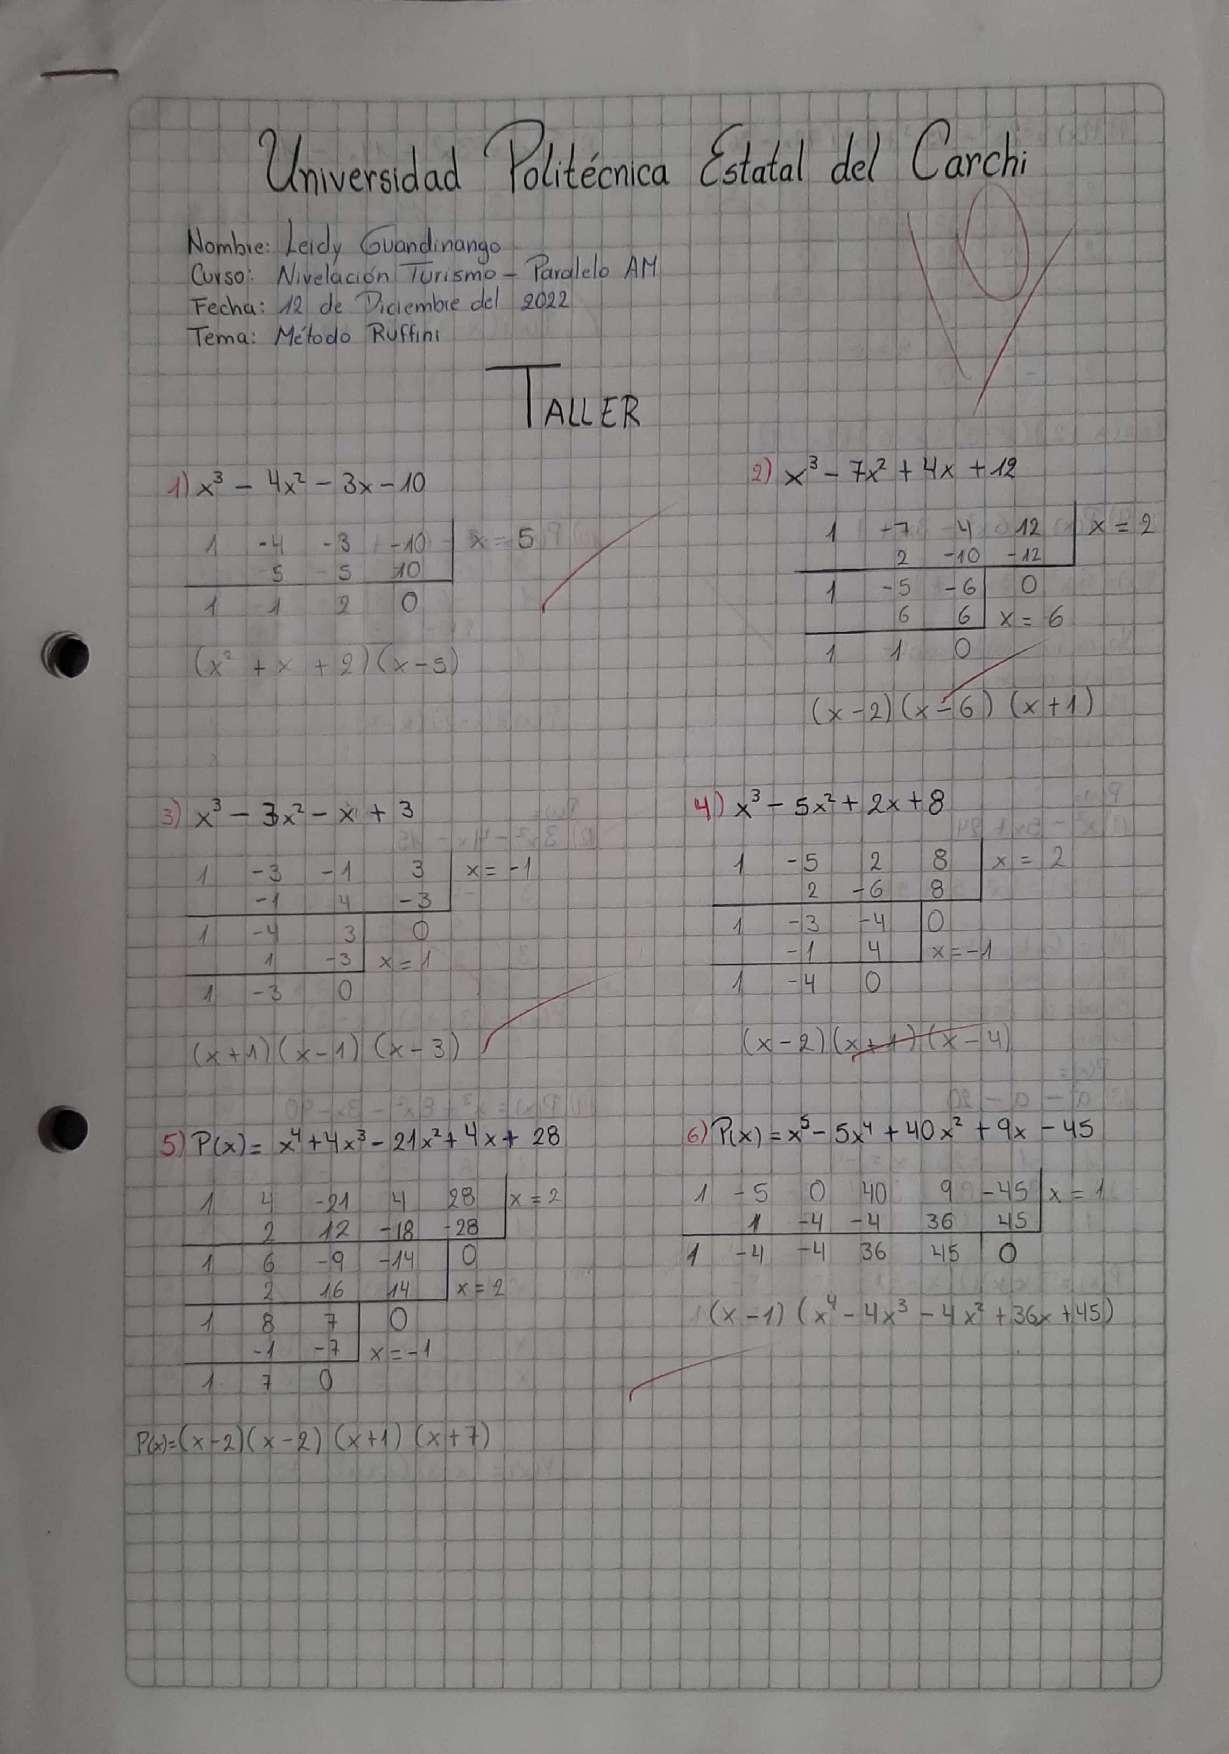 Universidad Politécnica Estatal del Carchi
10
Nombre: Leidy Guandinango
Curso: Nivelación Turismo - Paralelo AM
Fecha: 12 de Diciembre del 2022
Tema: Método Ruffini
TALLER
1) x³ - 4x² - 3x - 10
1 -4 -3 -10 x = 5
5 5 10
1 1 2 0
(x² + x + 2)(x - 5)
2) x³ - 7x² + 4x + 12
1 -7 4 12 x = 2
2 -10 -12
1 -5 -6 0
6 6 x = 6
1 1 0
(x - 2)(x - 6)(x + 1)
3) x³ - 3x² - x + 3
1 -3 -1 3 x = -1
-1 4 -3
1 -4 3 0
1 -3 x = 1
1 -3 0
(x + 1)(x - 1)(x - 3)
4) x³ - 5x² + 2x + 8
1 -5 2 8 x = 2
2 -6 8
1 -3 -4 0
-1 4 x = -1
1 -4 0
(x - 2)(x + 1)(x - 4)
5) P(x) = x⁴ + 4x³ - 21x² + 4x + 28
1 4 -21 4 28 x = 2
2 12 -18 -28
1 6 -9 -14 0
2 16 14 x = 2
1 8 7 0
-1 -7 x = -1
1 7 0
P(x) = (x - 2)(x - 2)(x + 1)(x + 7)
6) P(x) = x⁵ - 5x⁴ + 40x² + 9x - 45
1 -5 0 40 9 -45 x = 1
1 -4 -4 36 45
1 -4 -4 36 45 0
(x - 1)(x⁴ - 4x³ - 4x² + 36x + 45)